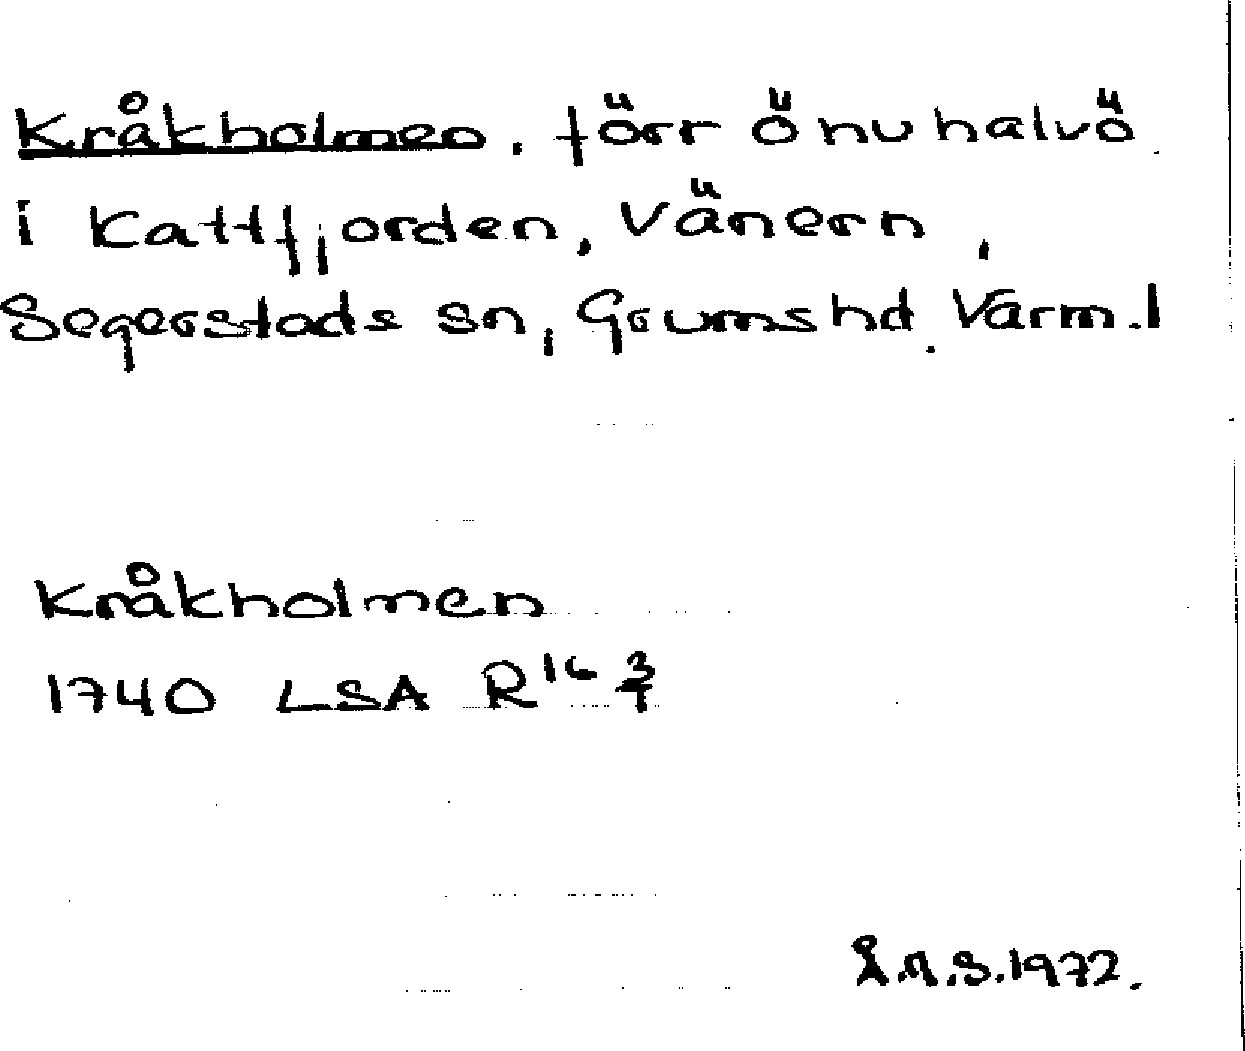 Kråkholmen, förr ö nu halvö
i Kattfjorden, Vänern,
Segerstads sn, Grums hd. Värm.l
Kråkholmen
1740 LSA R 16 3/1
Å.M.S.1972.